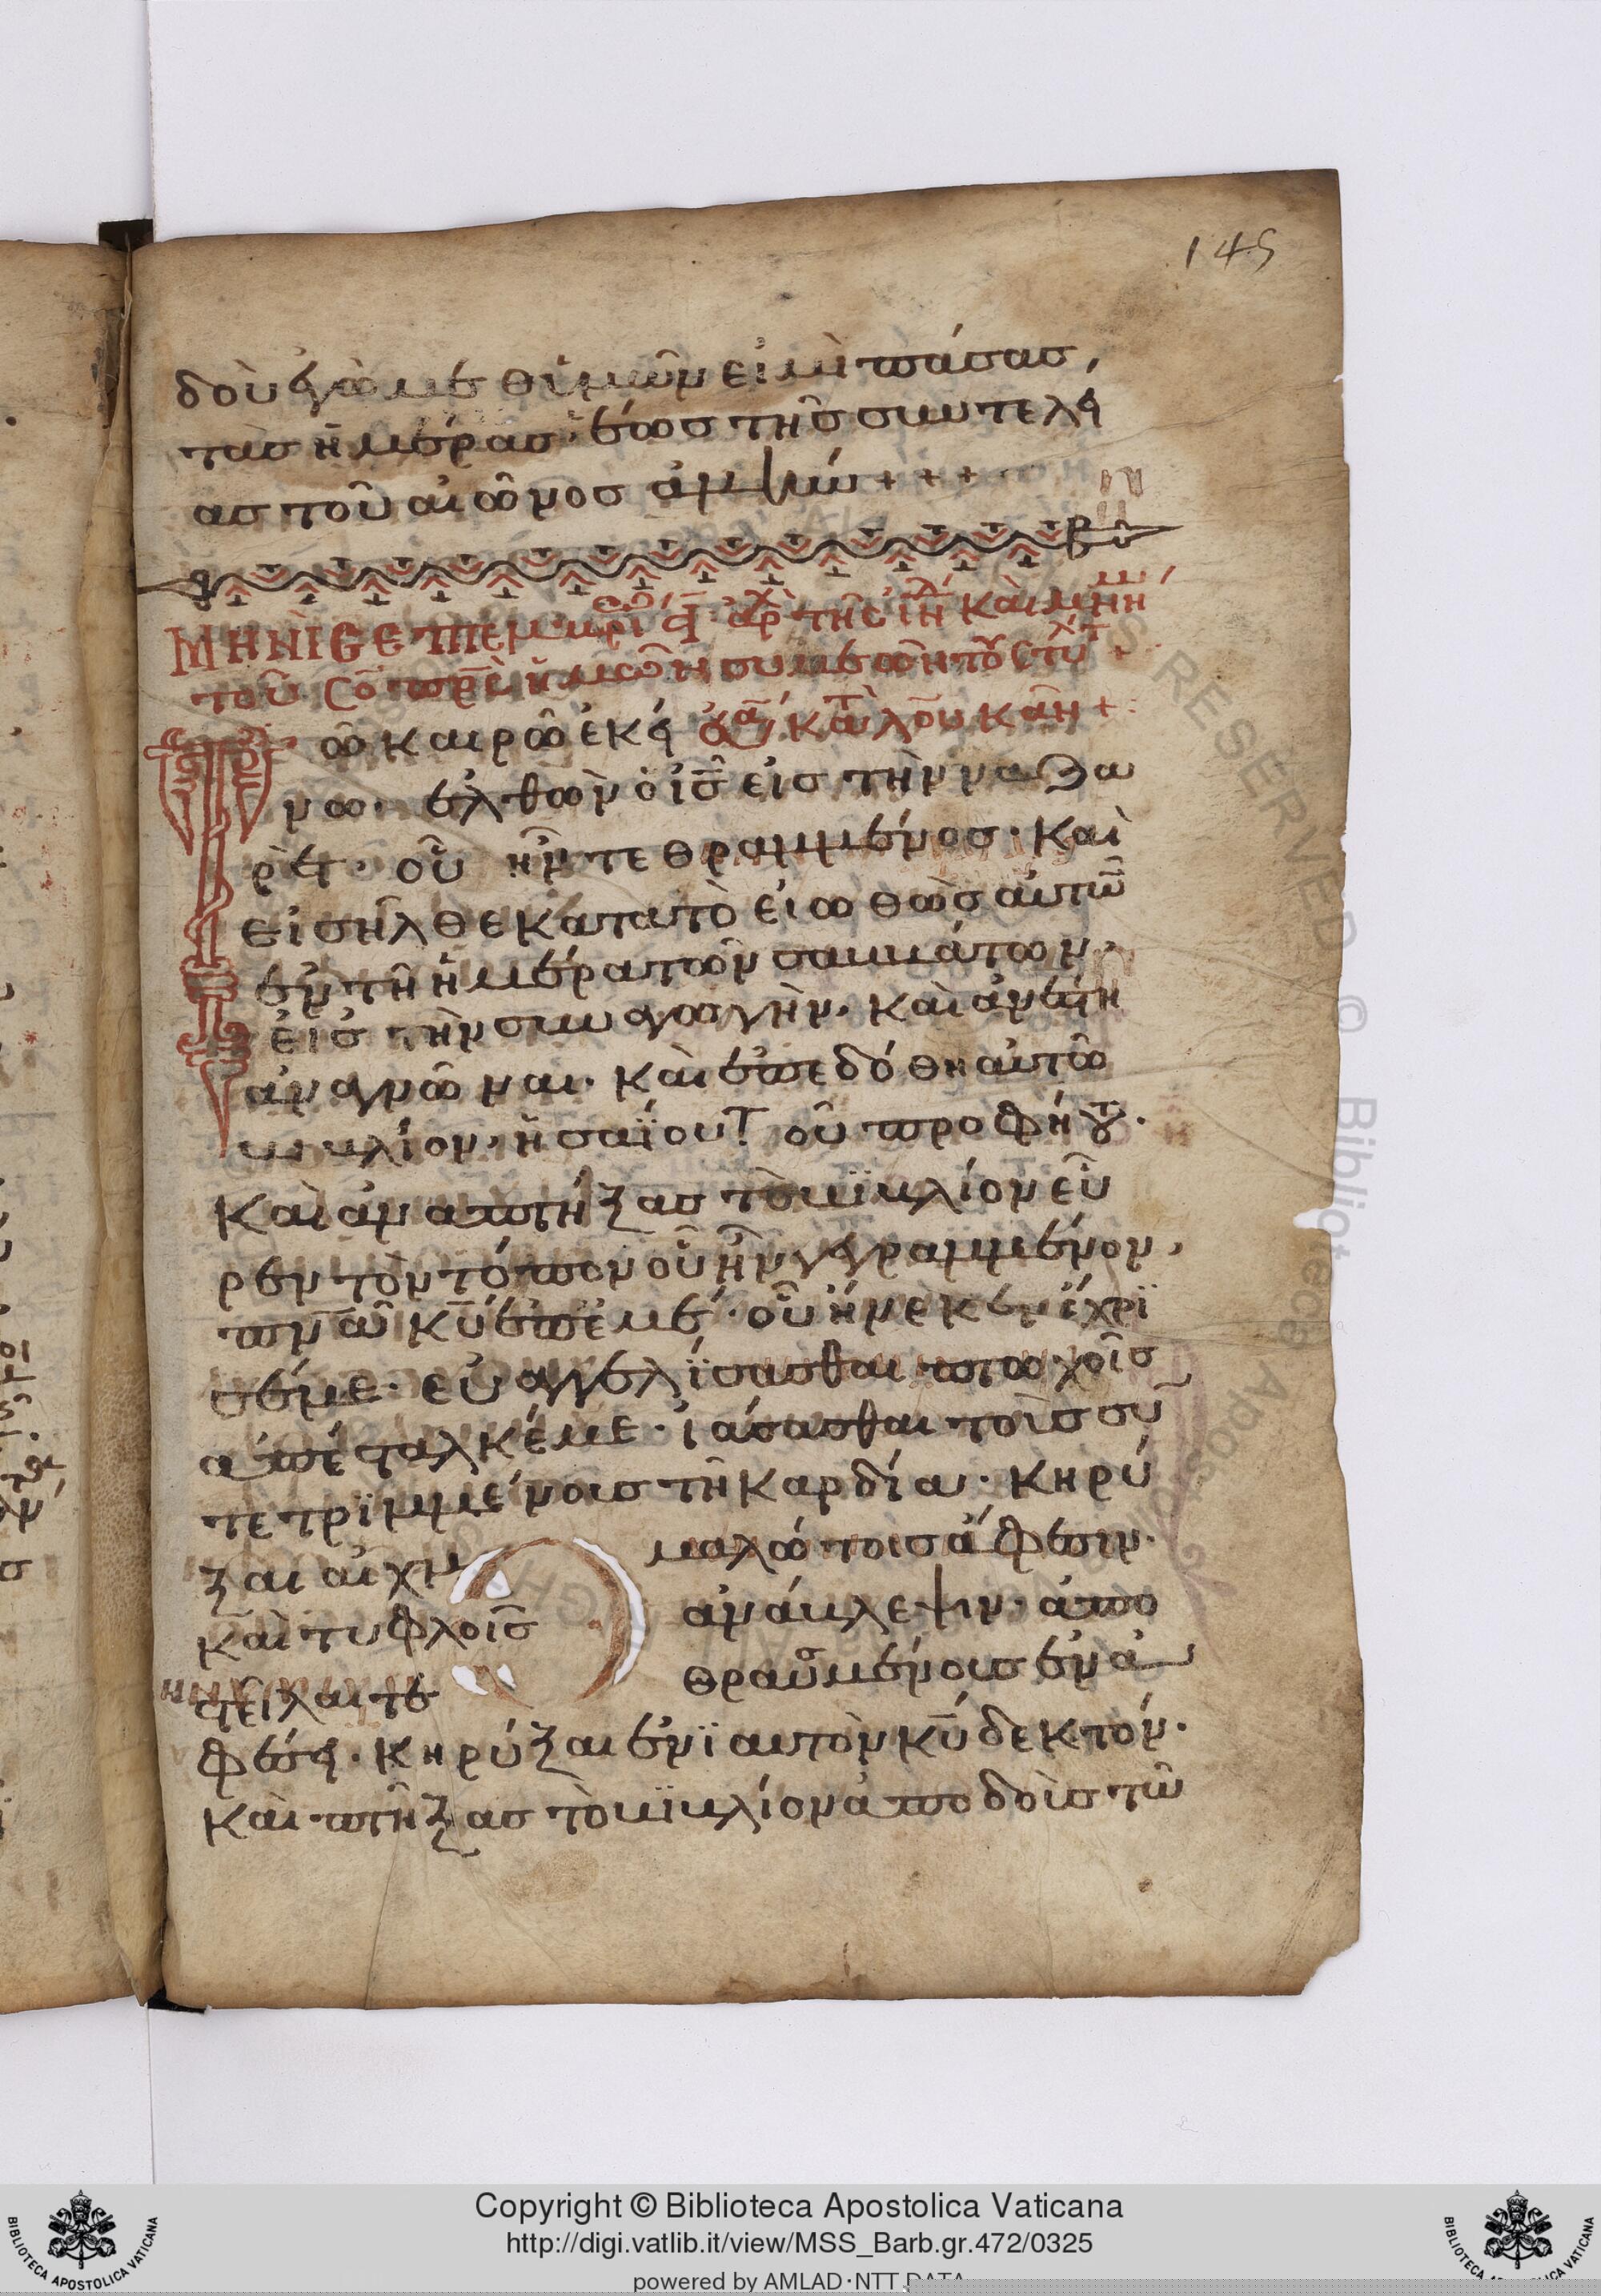 145
δοὺ ἐγὼ μεθ ὑμῶν εἰμὶ πάσας,
τὰς ἡμέρας· ἕως τῆς συντελεί
ας τοῦ αἰῶνος ἀμήν + + +
ΜΗΝῚ ϹΕΠΤΕΜ
τοῦ
ῶ καιρῶ ἐκεί κατὰ λουκᾶν +
νω· ἐλθὼν ὁ ις εἰς τὴν ναζα
ρὲτ· οὗ ἦν τεθραμμένος· Καὶ
εἰσῆλθε κατατὸ εἰωθὼς αὐτῶ
ἐν τῆ ἡμέρα τῶν σαββάτων,
εἰς τὴν συναγωγὴν, καὶ ἀνέστη
ἀναγνῶναι· Καὶ ἐπεδόθη αὐτῶ
βιβλίον, ἡσαΐου τοῦ προφήτου·
Καὶ ἀναπτήξας τὸ βϊβλίον εὗ
ρεν τὸν τόπον οὗ ἦν γεγραμμένον,
πνα κυ ἐπ ἐμέ· οὗ ἥνεκεν ἔχρϊ
σέν με· εὐαγγελΐσασθαι πτωχοῖς
ἀπέσταλκέ με· ἰάσασθαι τοὺς συ
τετρϊμμένοις τῆ Καρδία· Κηρύ
ξαι αἰχμ μαλώτοις ἄφεσιν·
καὶ τυφλοῖς ἀνάβλεψιν· ἀπο
στεῖλαι τε θραυσμένοις ἐν ἀ
φέσει· Κηρύξαι ἐνϊαυτὸν κυ δεκτόν·
Καὶ πτήξας τὸ βϊβλίον ἀποδοὺς τῶ
Copyright © Biblioteca Apostolica Vaticana
http://digi.vatlib.it/view/MSS_Barb.gr.472/0325
powered by AMLAD·NTT DATA
BIBLIOTECA APOSTOLICA VATICANA
BIBLIOTECA APOSTOLICA VATICANA